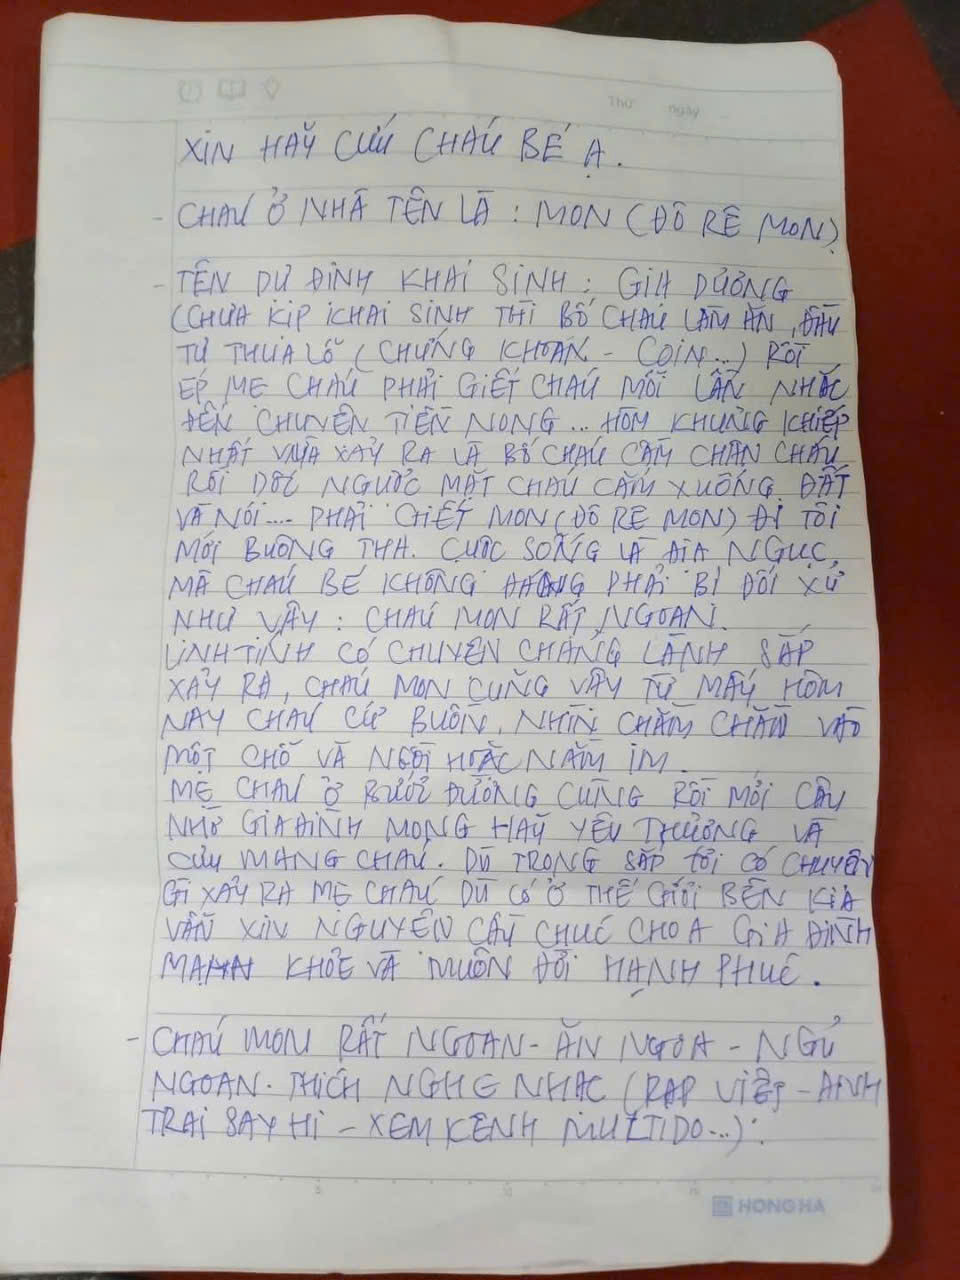 Thứ ngày
XIN HÃY CỨU CHÁU BÉ Ạ.
- CHÁU Ở NHÀ TÊN LÀ : MON (ĐÔ RÊ MON)
- TÊN DỰ ĐỊNH KHAI SINH : GIA DƯƠNG
(CHƯA KỊP KHAI SINH THÌ BỐ CHÁU LÀM ĂN, ĐẦU
TƯ THUA LỖ (CHỨNG KHOÁN - COIN...) RỒI
ÉP MẸ CHÁU PHẢI GIẾT CHÁU MỖI LẦN NHẮC
ĐẾN CHUYỆN TIỀN NONG ... HÔM KHỦNG KHIẾP
NHẤT VỪA XẢY RA LÀ BỐ CHÁU CẦM CHÂN CHÁU
RỒI DỐC NGƯỢC MẶT CHÁU CẮM XUỐNG ĐẤT
VÀ NÓI.... PHẢI GIẾT MON (ĐÔ RÊ MON) ĐI TÔI
MỚI BUÔNG THA. CUỘC SỐNG LÀ ĐỊA NGỤC,
MÀ CHÁU BÉ KHÔNG ĐÁNG PHẢI BỊ ĐỐI XỬ
NHƯ VẬY : CHÁU MON RẤT NGOAN.
LINH TÍNH CÓ CHUYỆN CHẲNG LÀNH SẮP
XẢY RA, CHÁU MON CŨNG VẬY TỪ MẤY HÔM
NAY CHÁU CỨ BUỒN, NHÌN CHẰM CHẰM VÀO
MỘT CHỖ VÀ NGỒI HOẶC NẰM IM.
MẸ CHÁU Ở BƯỚC ĐƯỜNG CÙNG RỒI MỚI CẦU
NHỜ GIA ĐÌNH MONG HÃY YÊU THƯƠNG VÀ
CƯU MANG CHÁU. DÙ TRONG SẮP TỚI CÓ CHUYỆN
GÌ XẢY RA MẸ CHÁU DÙ CÓ Ở THẾ GIỚI BÊN KIA
VẪN XIN NGUYỆN CẦU CHÚC CHO Ạ GIA ĐÌNH
MẠNH KHỎE VÀ MUÔN ĐỜI HẠNH PHÚC.
- CHÁU MON RẤT NGOAN - ĂN NGOA - NGỦ
NGOAN. THÍCH NGHE NHẠC (RAP VIỆT - ANH
TRAI SAY HI - XEM KÊNH MULTIDO...).
5 10 15
HONG HA